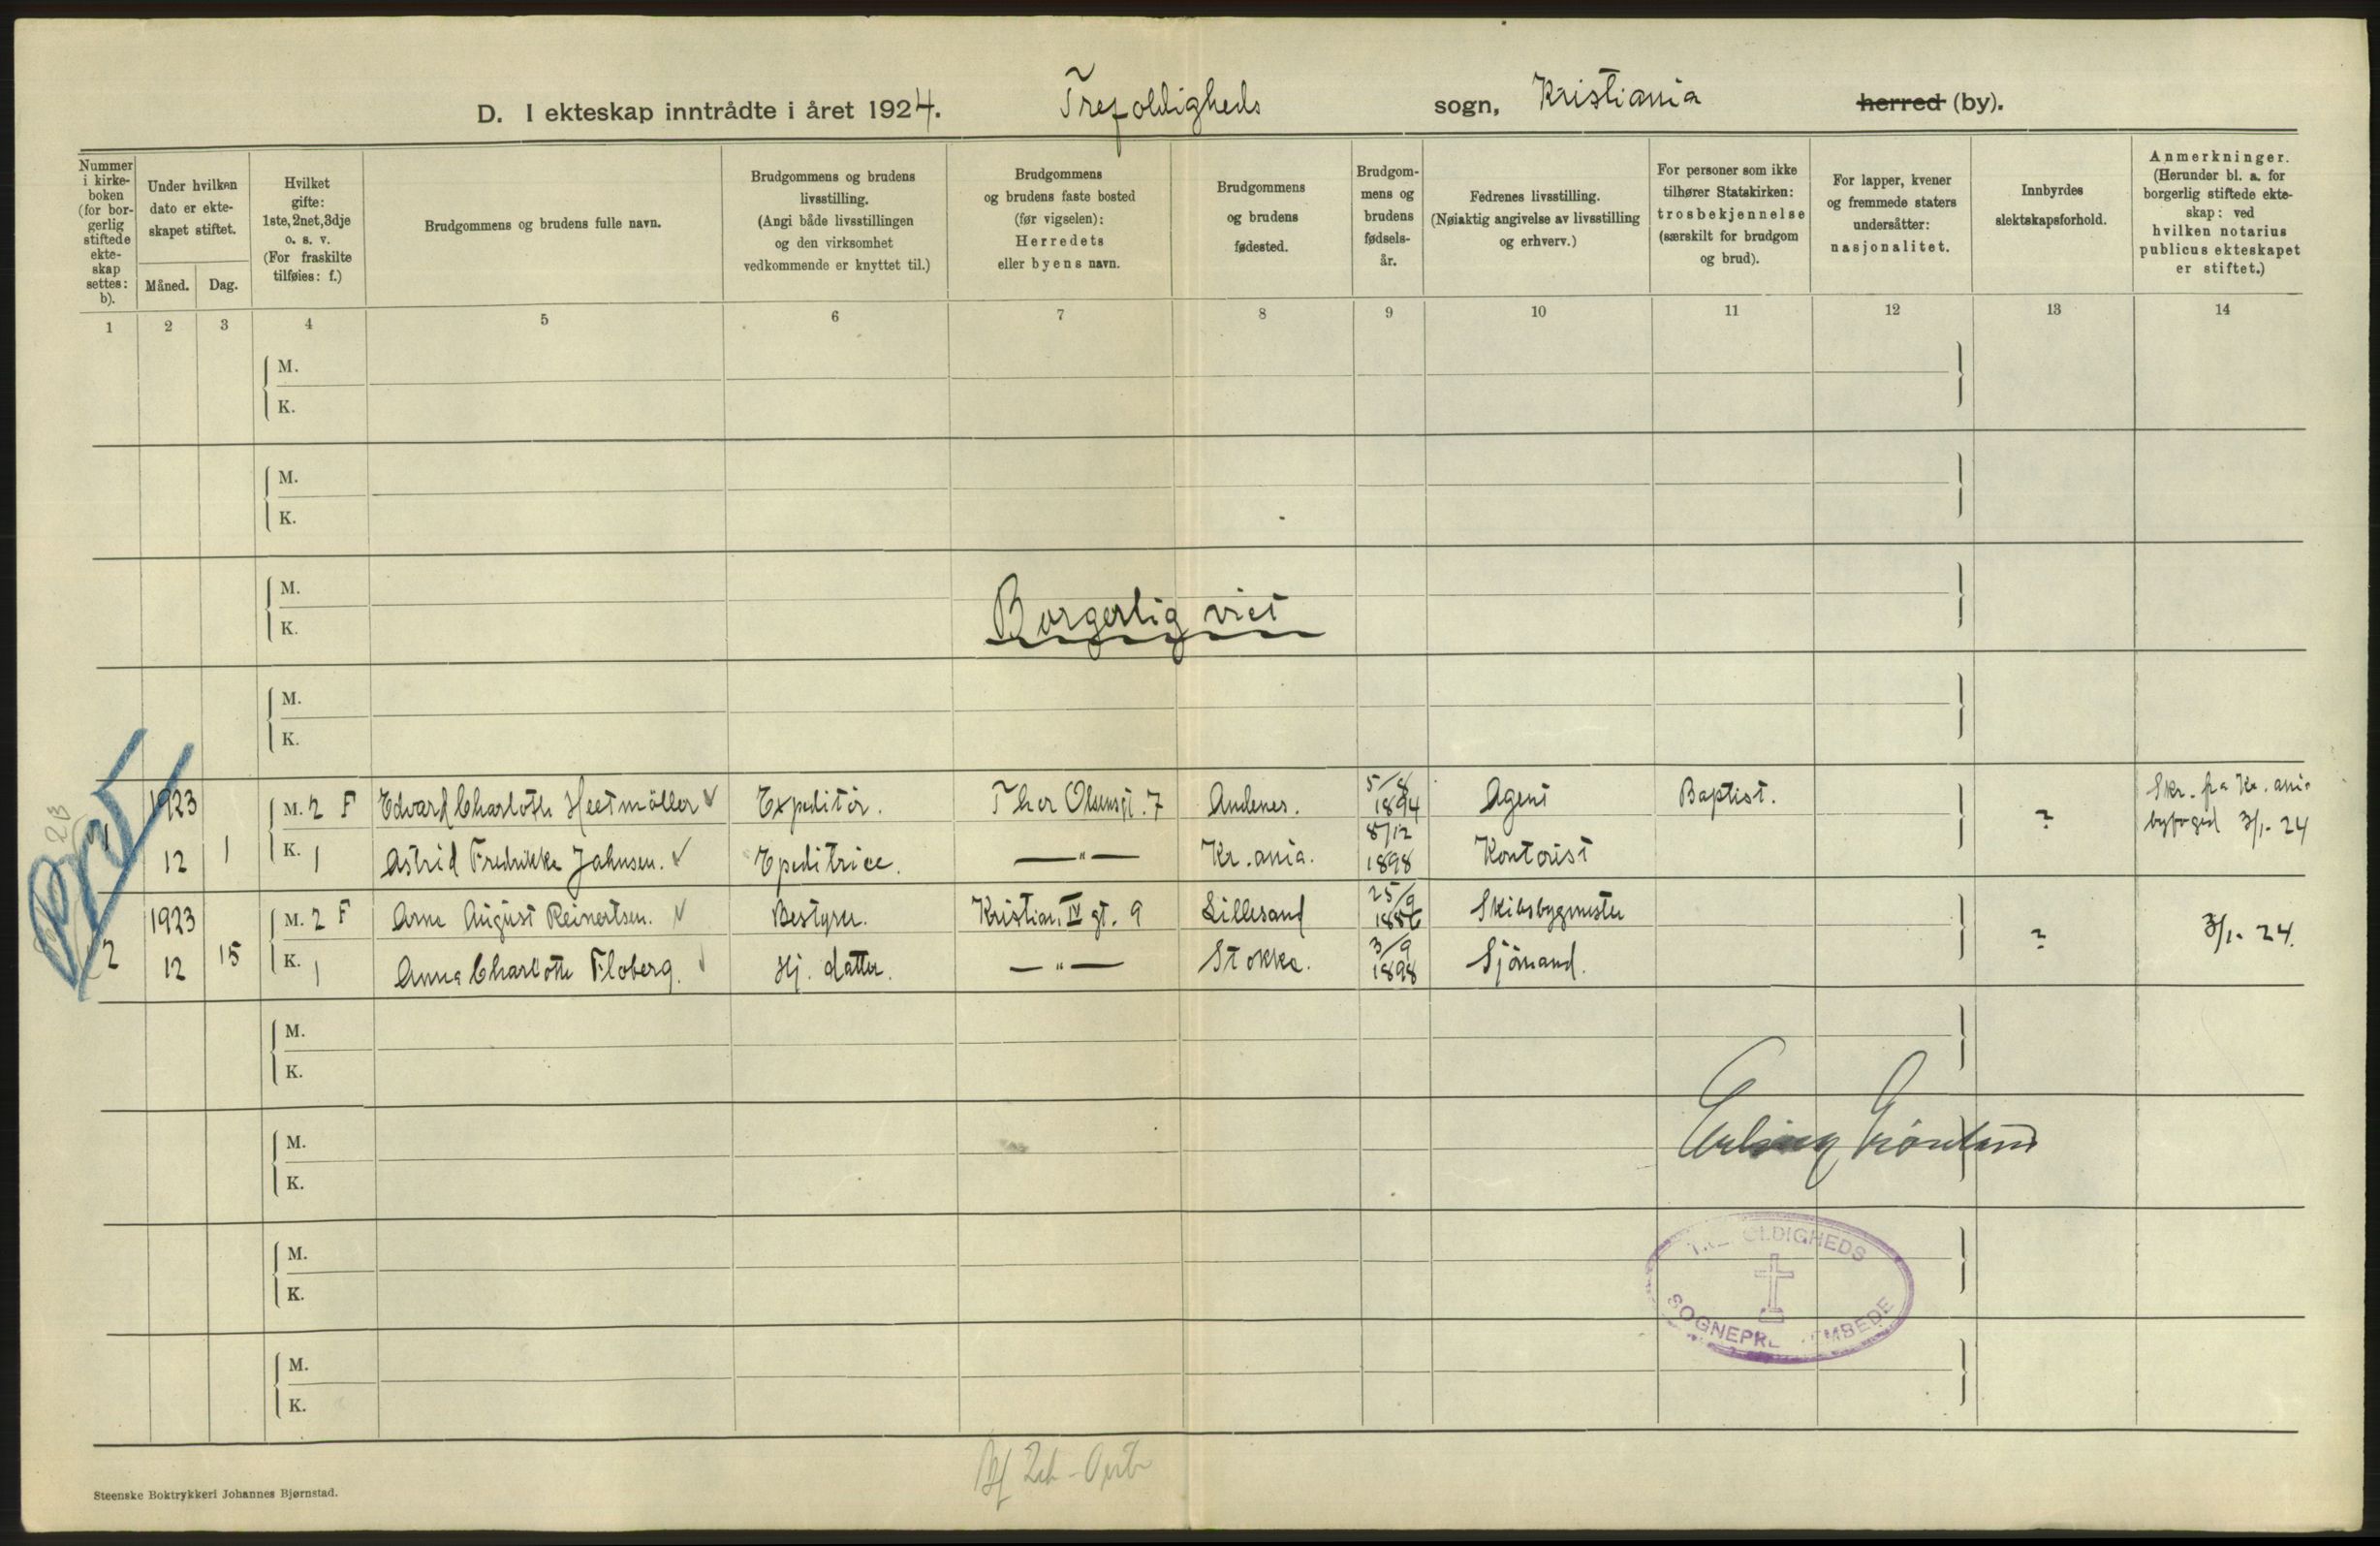 D. I ekteskap inntrådte i året 1924. Trefoldigheds sogn, Kristiania herred (by).
Nummer i kirkeboken (for borgerlig stiftede ekteskap settes: b).
Under hvilken dato er ekteskapet stiftet.
Måned. Dag.
Hvilket gifte: 1ste, 2net, 3dje o. s. v. (For fraskilte tilføies: f.)
Brudgommens og brudens fulle navn.
Brudgommens og brudens livsstilling. (Angi både livsstillingen og den virksomhet vedkommende er knyttet til.)
Brudgommens og brudens faste bosted (før vigselen): Herredets eller byens navn.
Brudgommens og brudens fødested.
Brudgommens og brudens fødselsår.
Fedrenes livsstilling. (Nøiaktig angivelse av livsstilling og erhverv.)
For personer som ikke tilhører Statskirken: trosbekjennelse (særskilt for brudgom og brud).
For lapper, kvener og fremmede staters undersåtter: nasjonalitet.
Innbyrdes slektskapsforhold.
Anmerkninger. (Herunder bl. a. for borgerlig stiftede ekteskap: ved hvilken notarius publicus ekteskapet er stiftet.)
1 2 3 4 5 6 7 8 9 10 11 12 13 14
M.
K.
M.
K.
M.
K.
Borgerlig viet
M.
K.
1923 M. 2 F Edvard Charlotte Heetmøller Expeditör. Thor Olsensgt. 7 Andenes. 5/8 1894 Agent Baptist. ? Skr. fra Kr.ania byfoged 3/1-24
12 1 K. 1 Astrid Fredrikke Jahnsen. Epeditrice. —"— Kr.ania. 8/12 1898 Kontorist
2 1923 M. 2 F Arne August Reinertsen. Bestyrer. Kristian IV gt. 9 Lillesand 25/9 1886 Skibsbygmester ? 3/1-24.
12 15 K. 1 Anna Charlotte Floberg. Hj. datter. —"— Stokke. 3/9 1898 Sjömand.
M.
K.
M.
K.
Erling Grönland
M.
K.
TREFOLDIGHEDS
SOGNEPRESTEMBEDE
M.
K.
Steenske Boktrykkeri Johannes Bjørnstad.